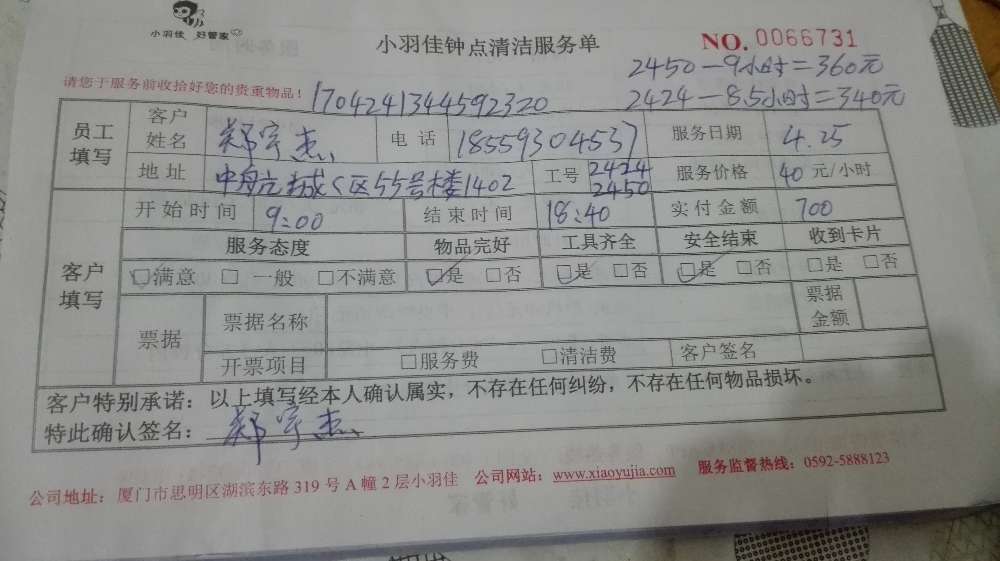 小羽佳 好管家
小羽佳钟点清洁服务单
NO. 0066731
2450-9小时=360元
请您于服务前收拾好您的贵重物品!
1704241344592320
2424-8.5小时=340元
员工填写 客户姓名 郑宇杰 电话 18559304537 服务日期 4.25
地址 中航城C区55号楼1402 工号 2424 2450 服务价格 40元/小时
客户填写 开始时间 9:00 结束时间 18:40 实付金额 700
服务态度 物品完好 工具齐全 安全结束 收到卡片
☑满意 □一般 □不满意 ☑是 □否 ☑是 □否 ☑是 □否 □是 □否
票据 票据名称 票据金额
开票项目 □服务费 □清洁费 客户签名
客户特别承诺:以上填写经本人确认属实,不存在任何纠纷,不存在任何物品损坏。
特此确认签名: 郑宇杰
公司地址:厦门市思明区湖滨东路319号A幢2层小羽佳 公司网站:www.xiaoyujia.com 服务监督热线:0592-5888123